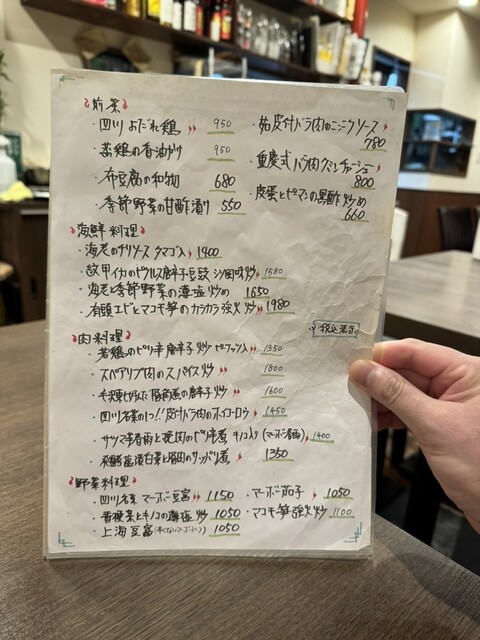 前菜
・四川よだれ鶏 950
・蒸鶏の香油がけ 950
・布豆腐の和物 680
・季節野菜の甘酢漬け 550
皮付バラ肉のニンニクソース 780
・重慶式バラ肉 800
・皮蛋とピーマンの黒酢炒め 660
海鮮料理
・海老のチリソース タマゴ入 1400
・紋甲イカのピクルス唐辛子豆豉 炒 1580
・海老と季節野菜の薄塩炒め 1650
・有頭エビとマコモ筍のカラカラ強火炒 1980
税込表示
肉料理
・若鶏のピリ辛唐辛子炒 ピーナッツ入 1350
・スペアリブ肉のスパイス炒 1800
の唐辛子炒 1600
・四川名菜の1つ!!皮付バラ肉のホイコーロウ 1450
・サツマ芋春雨と挽肉のピリ辛煮 キノコ入り(マーボー春雨) 1400
白菜と豚肉のサッパリ煮 1350
野菜料理
・四川名菜 マーボ豆腐 1150
・青梗菜とキノコの薄塩炒 1050
・上海豆腐 1050
・マーボ茄子 1050
・マコモ筍強火炒 1100